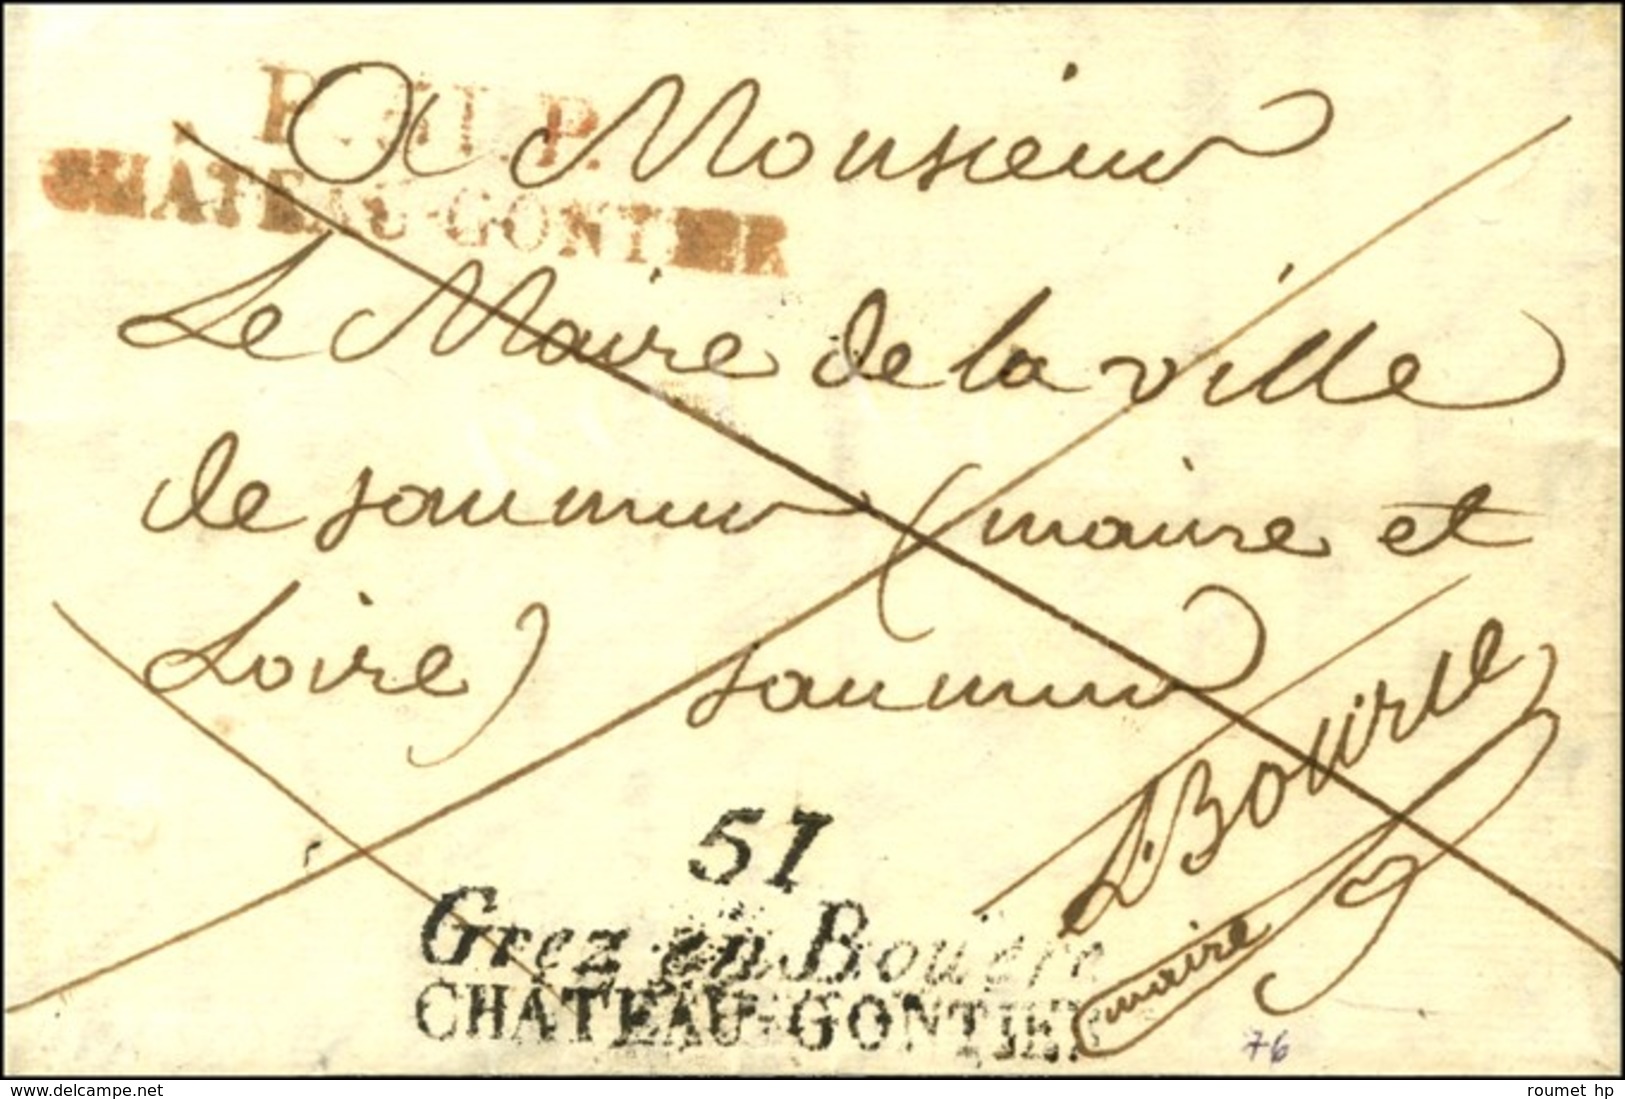 P. P.
A Monsieur
CHATEAU-GONTIER
Le Maire de la ville
de saumur (maine et
Loire) saumur
Bourse
maire
51
Grez en Bouère
CHATEAU-GONTIER
76
www.delcampe.net
roumet hp